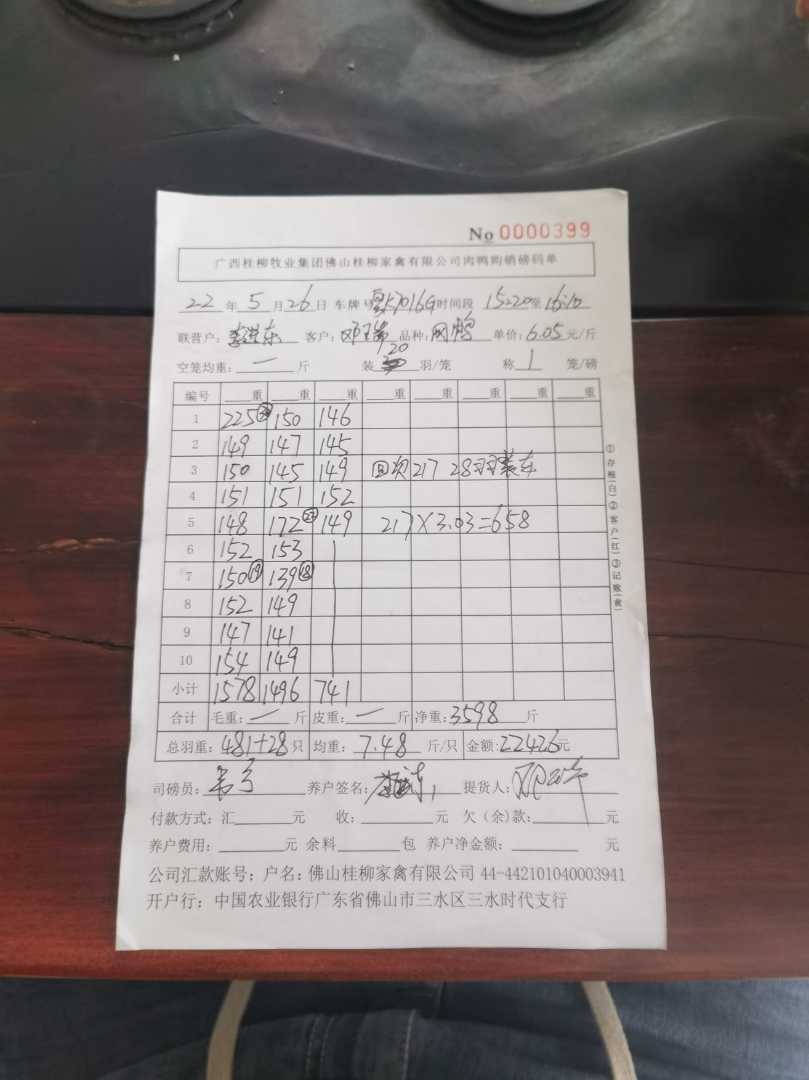 No 0000399
广西桂柳牧业集团佛山桂柳家禽有限公司肉鸭购销磅码单
22 年 5 月 26 日 车牌号 016G 时间段 15:20 至 16:10
联营户: 李洪东 客户: 邓瑞 品种: 网鸭 单价: 6.05 元/斤
空笼均重: 一 斤 装 20 羽/笼 称 1 笼/磅
编号 重 重 重 重 重 重 重 重
1 225 150 146
2 149 147 145
3 150 145 149 217 28羽
4 151 151 152
5 148 172 149 217×3.03=658
6 152 153
7 150 ⑲ 139 ⑱
8 152 149
9 147 141
10 154 149
小计 1578 1496 741
合计 毛重: 一 斤 皮重: 一 斤 净重: 3598 斤
总羽重: 481+28 只 均重: 7.48 斤/只 金额: 22426 元
司磅员: 养户签名: 提货人:
付款方式: 汇 元 收: 元 欠(余)款: 元
养户费用: 元 余料 包 养户净金额: 元
公司汇款账号: 户名: 佛山桂柳家禽有限公司 44-442101040003941
开户行: 中国农业银行广东省佛山市三水区三水时代支行
①存根(白)②客户(红)③记账(黄)